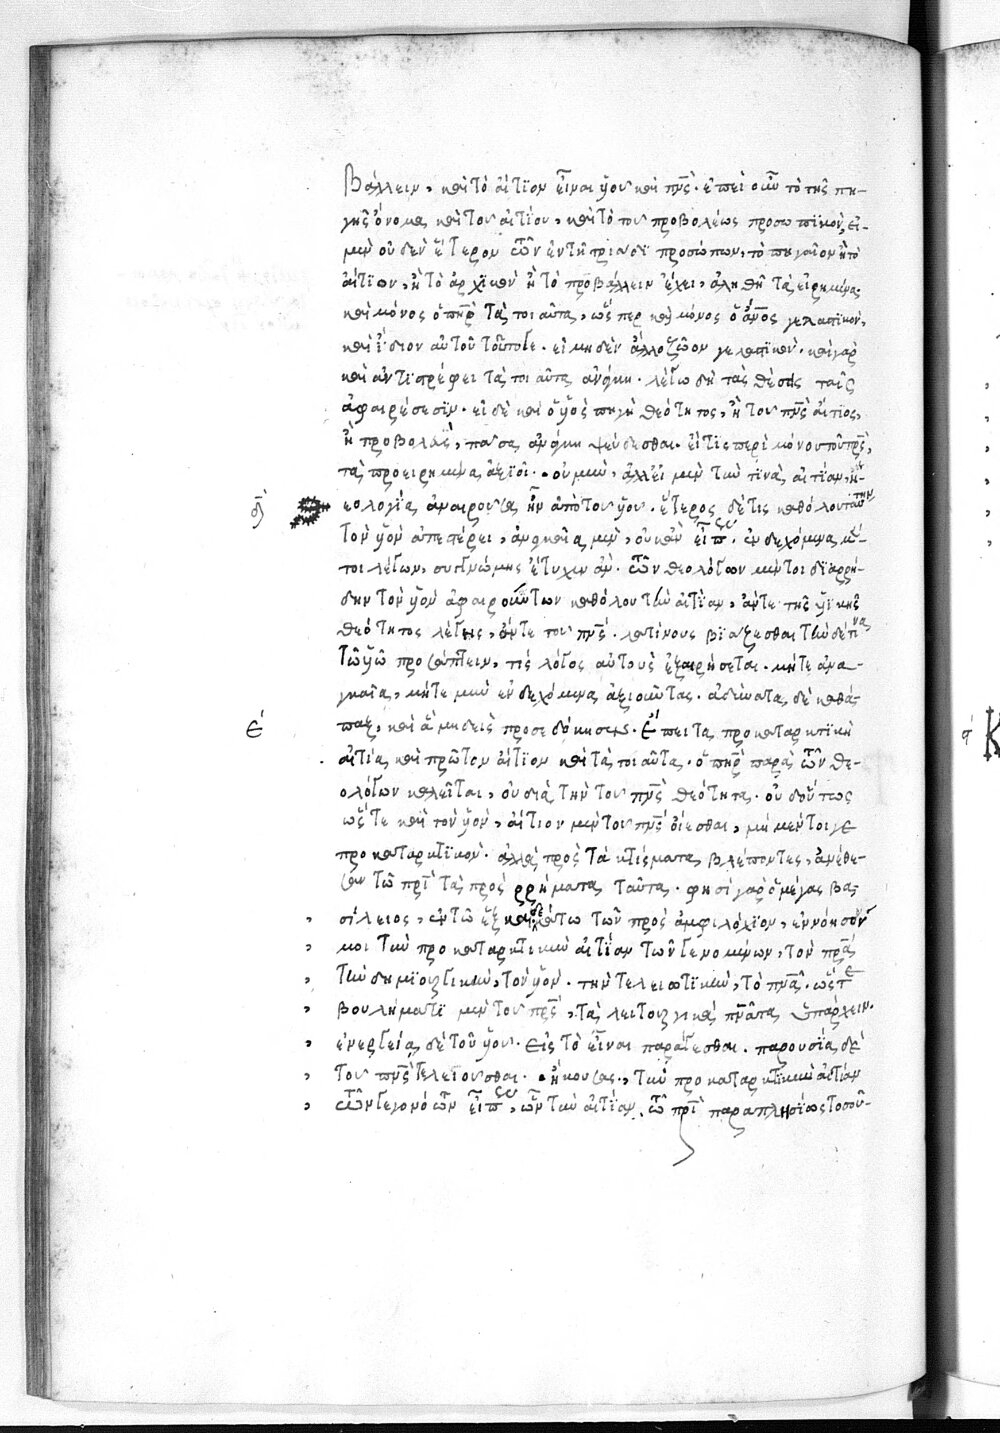 βάλλειν, καὶ τὸ αἴτιον εἶναι υἱοῦ καὶ πνς. ἐπεὶ οὖν τὸ τῆς πη-
γῆς ὄνομα, καὶ τοῦ αἰτίου, καὶ τὸ τοῦ προβολέως προσωπικόν, εἰ
μὲν οὐδὲν ἕτερον τῶν ἐν τῇ τριάδι προσώπων, τὸ πηγαῖον ἢ τὸ
αἴτιον, ἢ τὸ ἀρχικὸν ἢ τὸ προβάλλειν ἔχει, ἀληθῆ τὰ εἰρημένα.
καὶ μόνος ὁ πηρ τὰ τοιαῦτα, ὥσπερ καὶ μόνος ὁ ἄνος γελαστικόν,
καὶ ἴδιον αὐτοῦ τοῦτό γε. εἰ μηδὲν ἄλλο ζῶον γελαστικόν. καὶ γὰρ
καὶ ἀντιστρέφει τὰ τοιαῦτα ἀνάγκη. λέγω δὴ τὰς θέσεις ταῖς
ἀφαιρέσεσιν. εἰ δὲ καὶ ὁ υἱὸς πηγὴ θεότητος, ἢ τοῦ πνς αἴτιος,
ἢ προβολεὺς, πᾶσα ἀνάγκη ψεύδεσθαι. εἴ τις περὶ μόνου τοῦ πρς,
τὰ προειρημένα ἀξιοῖ. οὐ μὴν, ἀλλ' εἰ μὲν τήν τινα αἰτίαν, ἡ
θεολογία ἀναιροῦσα ἦν ἀπὸ τοῦ υἱοῦ. ἕτερος δέ τις καθόλου ταύτην
τὸν υἱὸν ἀπεστέρει, ἀναγκαῖα μὲν, οὐκ ἂν εἴπ. ἐνδεχόμενα μέν
τοι λέγων, συγγνώμης ἔτυχεν ἄν. τῶν θεολόγων μέντοι διαρρή-
δην τὸν υἱὸν ἀφαιρούντων καθόλου τὴν αἰτίαν, ἄντε τῆς υἱικῆς
θεότητος λέγῃς, ἄντε τοῦ πνς. λατίνους βιάζεσθαι τὴν δέ τινα
τῷ υἱῷ προσάπτειν, τίς λόγος αὐτοὺς ἐξαιρήσεται. μήτε ἀνα-
γκαῖα, μήτε μὴν ἐνδεχόμενα ἀξιοῦντας. ἀδύνατα δὲ καθά-
παξ, καὶ ἃ μηδεὶς προσεδόκησεν. ἔπειτα προκαταρκτικὴ
αἰτία, καὶ πρῶτον αἴτιον καὶ τὰ τοιαῦτα. ὁ πηρ παρὰ τῶν θε-
ολόγων καλεῖται, οὐ διὰ τὴν τοῦ πνς θεότητα. οὐδ' οὕτως
ὥστε καὶ τὸν υἱὸν, αἴτιον μὲν τοῦ πνς οἴεσθαι, μὴ μέντοι γε
προκαταρκτικόν. ἀλλὰ πρὸς τὰ κτίσματα βλέποντες, ἀνέθε-
σαν τῷ πρὶ τὰ πρὸς ρρήματα ταῦτα. φησὶ γὰρ ὁ μέγας βα-
σίλειος, ἐν τῷ ἑξκαιδεκάτω τῶν πρὸς ἀμφιλόχιον, ἐννόησόν
μοι τὴν προκαταρκτικὴν αἰτίαν τῶν γενομένων, τὸν πρα
τὴν δημιουργικὴν, τὸν υἱόν. τὴν τελειωτικὴν, τὸ πνα. ὥστε
βουλήματι μὲν τοῦ πρς, τὰ λειτουργικὰ πνατα ὑπάρχειν.
ἐνεργείᾳ δὲ τοῦ υἱοῦ. εἰς τὸ εἶναι παράγεσθαι. παρουσίᾳ δὲ
τοῦ πνς τελειοῦσθαι. ἤκουσας, τὴν προκαταρκτικὴν αἰτίαν
τῶν γεγονότων εἴπ, ὧν τὴν αἰτίαν. τῷ πρὶ παραπλησίως τοσοῦ-
ε